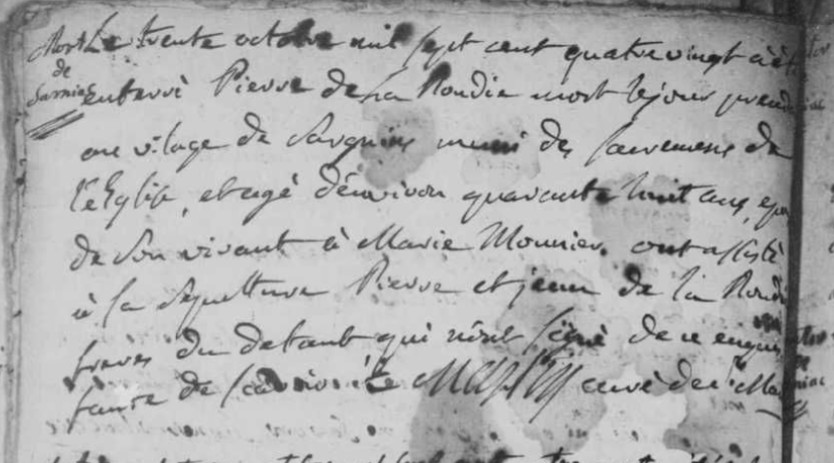 Mort
de
Le trente octobre mil sept cent quatre vingt a été
enterré Pierre de La Roudie mort le jour
au vilage de munis des sacremens de
l'eglise, et agé d'environ quarante huit ans,
de son vivant à Marie Mounier. ont assisté
à la sepulture Pierre et jean de la Roudi
freres du defunt qui n'ont signé de ce enquis
faute de curé de